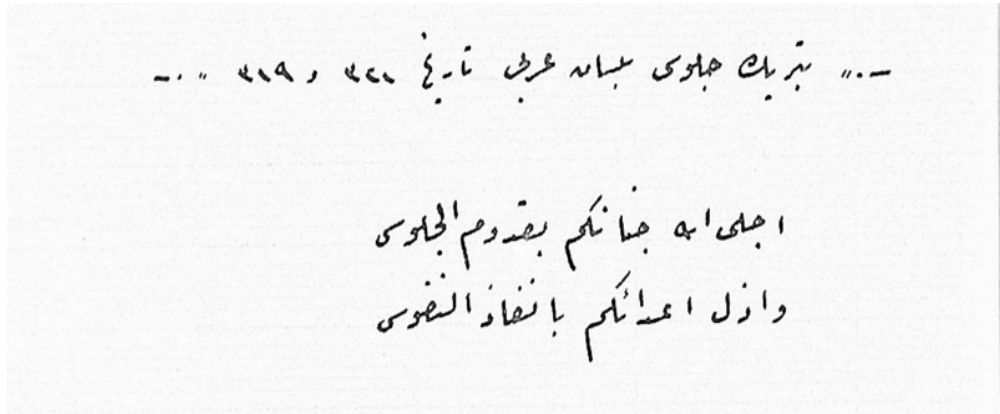 -.„ تبريك جلوس بلسان عربى تاريخ ٣٢١ و ٣١٩ „.-
اجلى الله جنانكم بقدوم الجلوس
واذل اعدائكم بانفاذ النفوس